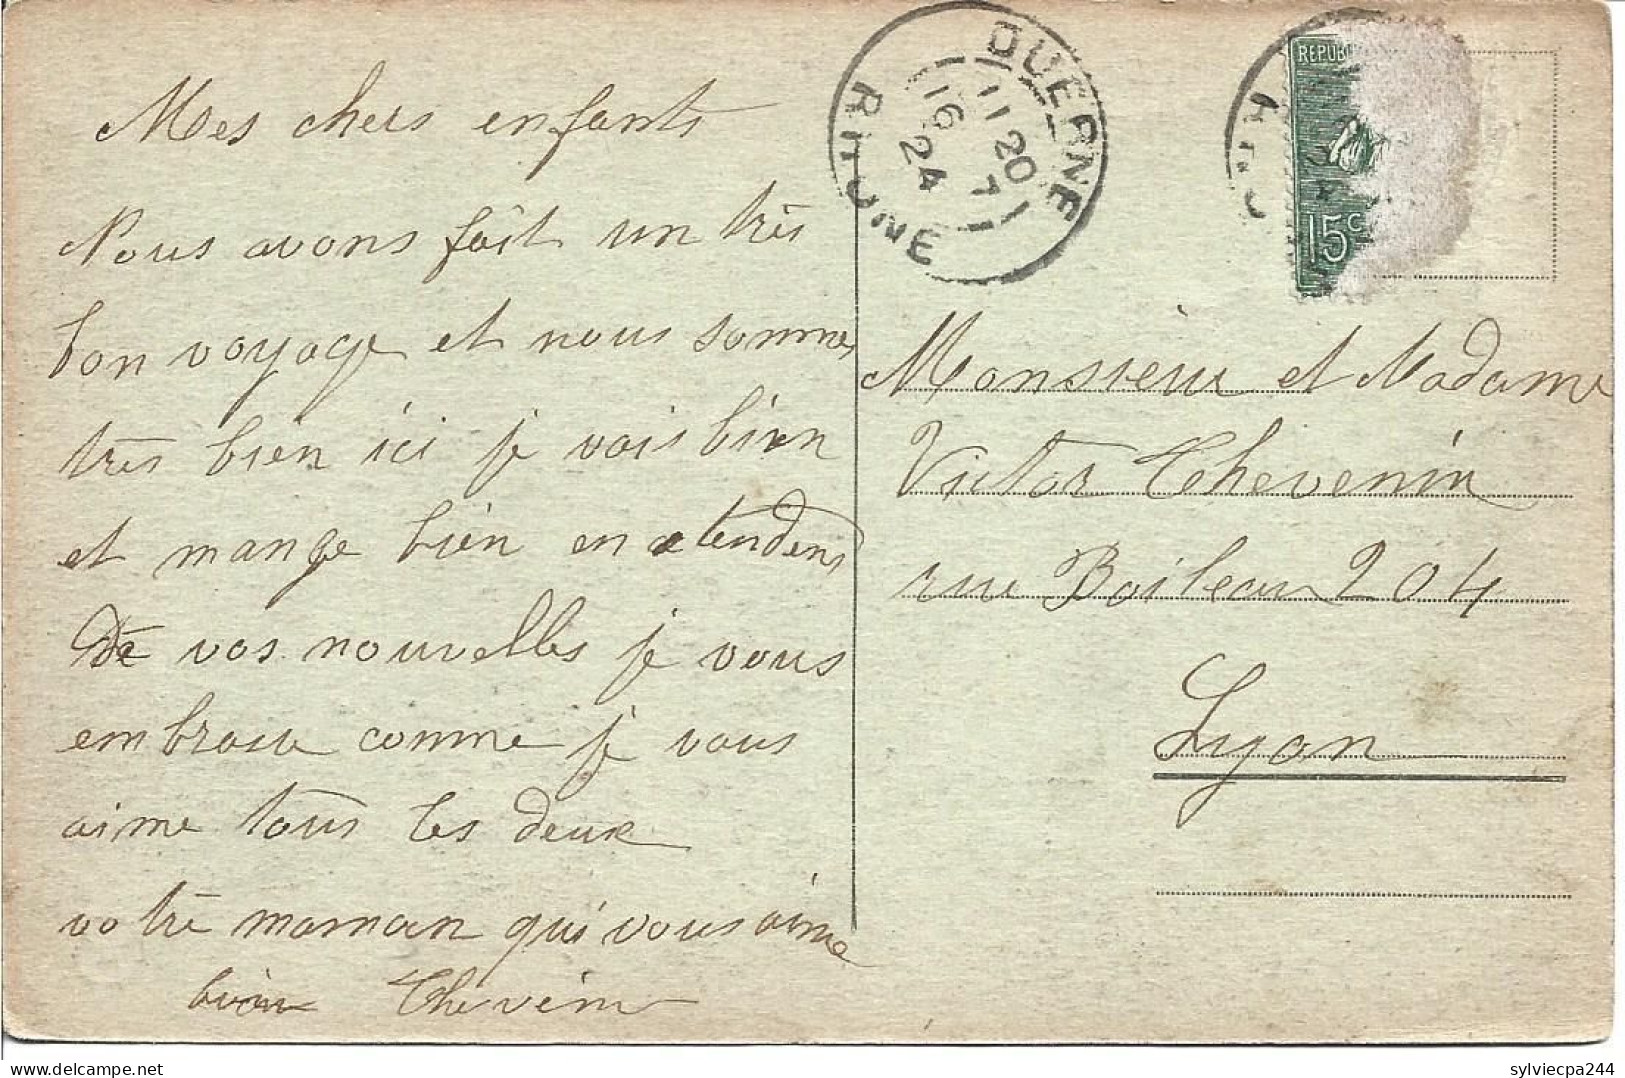 Mes chers enfants
Nous avons fait un très
bon voyage et nous sommes
très bien ici je vois bien
et mange bien en atendens
De vos nouvelles je vous
embrasse comme je vous
aime tous les deux
votre maman qui vous aime
bien Thevenin
DUERNE
11 20
16 7
24
RHONE
REPUB
15c
Monsieur et Madame
Victor Thevenin
rue Boileau 204
Lyon
sylviecpa244